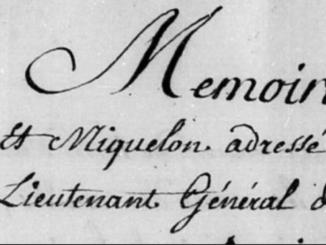 Memoir
et Miquelon. adressé
Lieutenant Général d